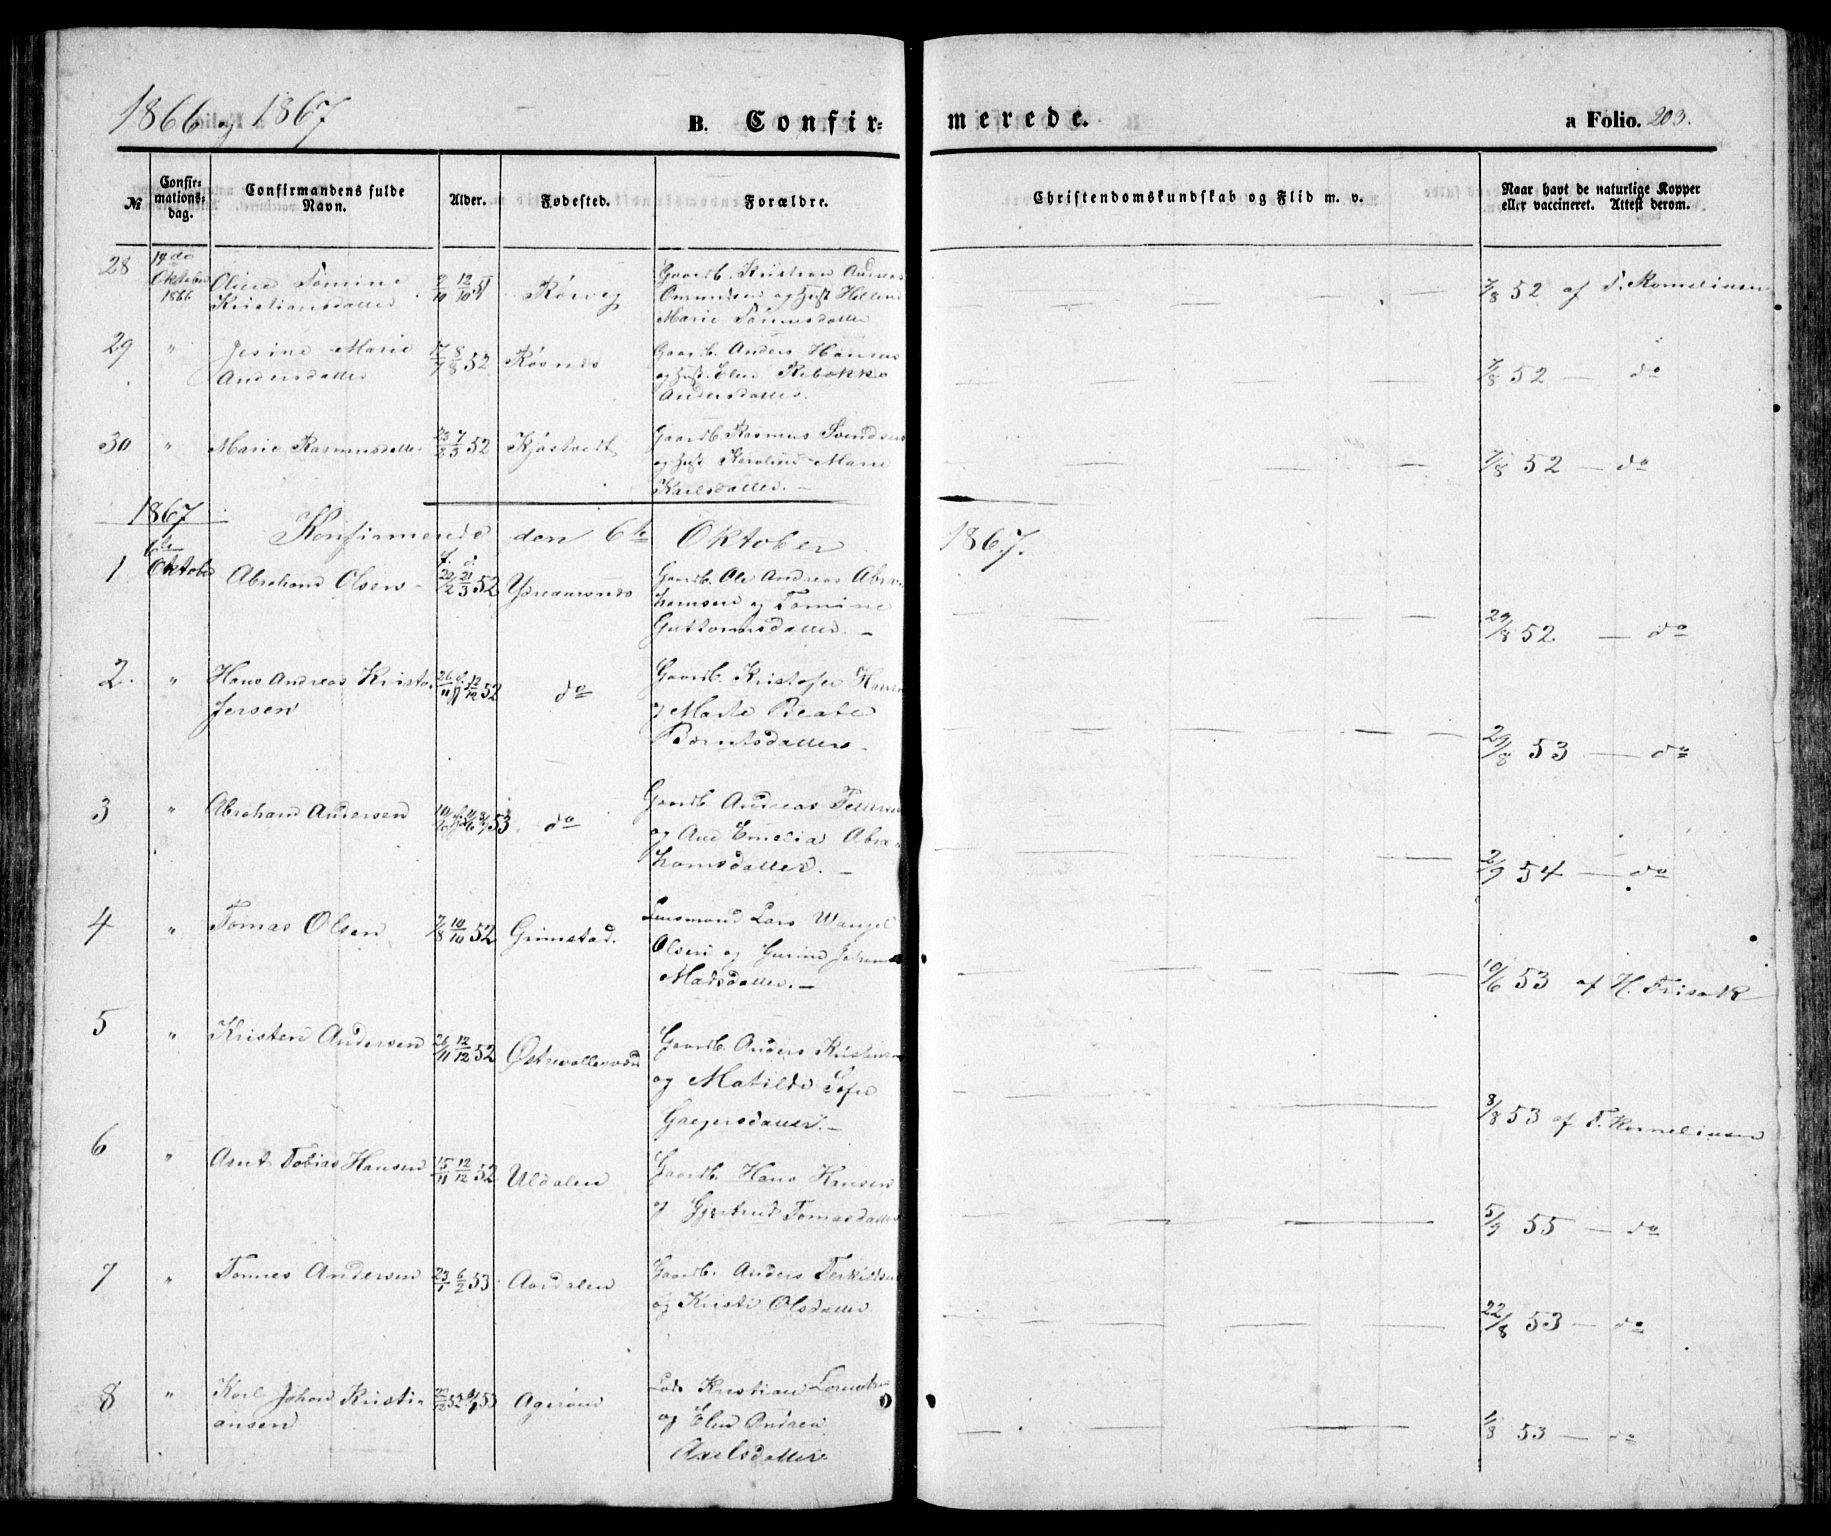 1866 og 1867
B. Confir-
merede.
a Folio. 203.
№
Confir-
mations-
dag.
Confirmandens fulde
Navn.
Alder.
Fødested.
Forældre.
Christendomskundskab og Flid m. v.
Naar havt de naturlige Kopper
eller vaccineret. Attest derom.
28
14de
Oktober
1866
Oline Tomine
Kristiansdatter
12/10 51
Rørvig
Gaardb. Kristian Andreas
Omundsen og Hust Hellene
Marie Tønnesdatter
7/8 52 af T. Korneliusen
29
"
Jesine Marie
Andersdatter
17/7 8/8 52
Røsnes
Gaardb. Anders Hansen
og Hust. Elen Rebekka
Andersdatter.
7/8 52 — do
30
"
Marie Rasmusdatter
23/2 7/3 52
Kjøstvedt
Gaardb. Rasmus Svendsen
og Hust Karoline Marie
Karlsdatter. —
7/8 52 — do
1867
Konfirmerede den 6te Oktober
1867.
1
6te
Oktober
Abraham Olsen
f. d.
22/2 21/3 52
Ydreamsnes
Gaardb. Ole Andreas Abra-
hamsen og Tomine
Guttormsdatter —
29/8 52 — do
2.
"
Hans Andreas Kristo-
fersen
26/11 12/12 52
do
Gaardb. Kristofer Hansen
og Marte Beate
Berntsdatter.
29/8 53 — do
3
"
Abraham Andersen
53
do
Gaardb Andreas Tellefsen
og Ane Emelia Abra-
hamsdatter. —
2/9 54 — do
4
"
Tomas Olsen
7/8 10/10 52
Grimstad.
Lensmand Lars Wangel
Olsen og Gurine Johanne
Madsdatter. —
10/6 53 af H. Frisak
5
"
Kristen Andersen
26/11 12/12 52
Østrevallesværd
Gaardb. Anders Kristensen
og Matilde Sofie
Gregersdatter. —
8/8 53 af T. Korneliusen
6
"
Arnt Tobias Hansen
15/11 12/12 52
Uldalen
Gaardb. Hans Hansen
og Gjertrud Tomasdatter
5/9 55 — do
7
"
Tønnes Andersen
23/1 6/2 53
Aardalen
Gaardb. Anders Terkildsen
og Kristi Olsdatter
22/8 53 — do
8
"
Karl Johan Kristi-
ansen
52 53
Agerøen
Lods Kristian
og Elen Andrea
Axelsdatter
1/8 53 — do